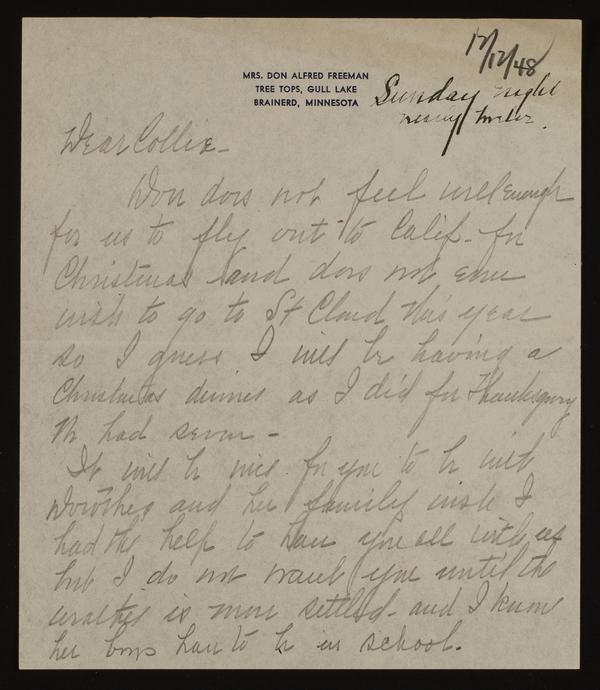 12/12/48
MRS. DON ALFRED FREEMAN
TREE TOPS, GULL LAKE
BRAINERD, MINNESOTA
Sunday night
Dear Collie-
Don does not feel well enough
for us to fly out to Calif. for
Christmas and does not even
wish to go to St Cloud this year
so I guess I will be having a
Christmas dinner as I did for Thanksgiving
We had seven -
It will be nice for you to be with
Dorothy and her family wish I
had the help to have you all with us
but I do not want you until the
weather is more settled - and I know
her boys have to be in school.